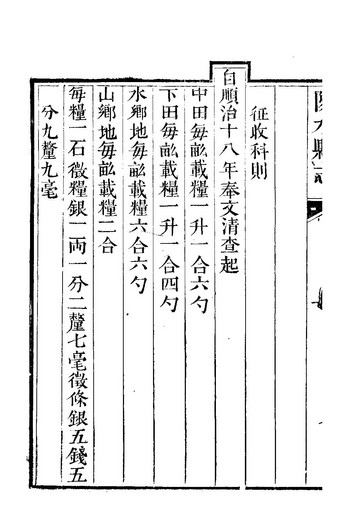 征收科則
自順治十八年奉文清查起
中田每畝載糧一升一合六勺
下田每畝載糧一升一合四勺
水鄉地每畝載糧六合六勺
山鄉地每畝載糧二合
每糧一石徵糧銀一両一分二釐七毫徵條銀五錢五
分九釐九毫